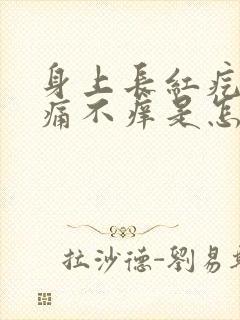 身上長紅疙
痛不癢是怎
拉沙德-劉易